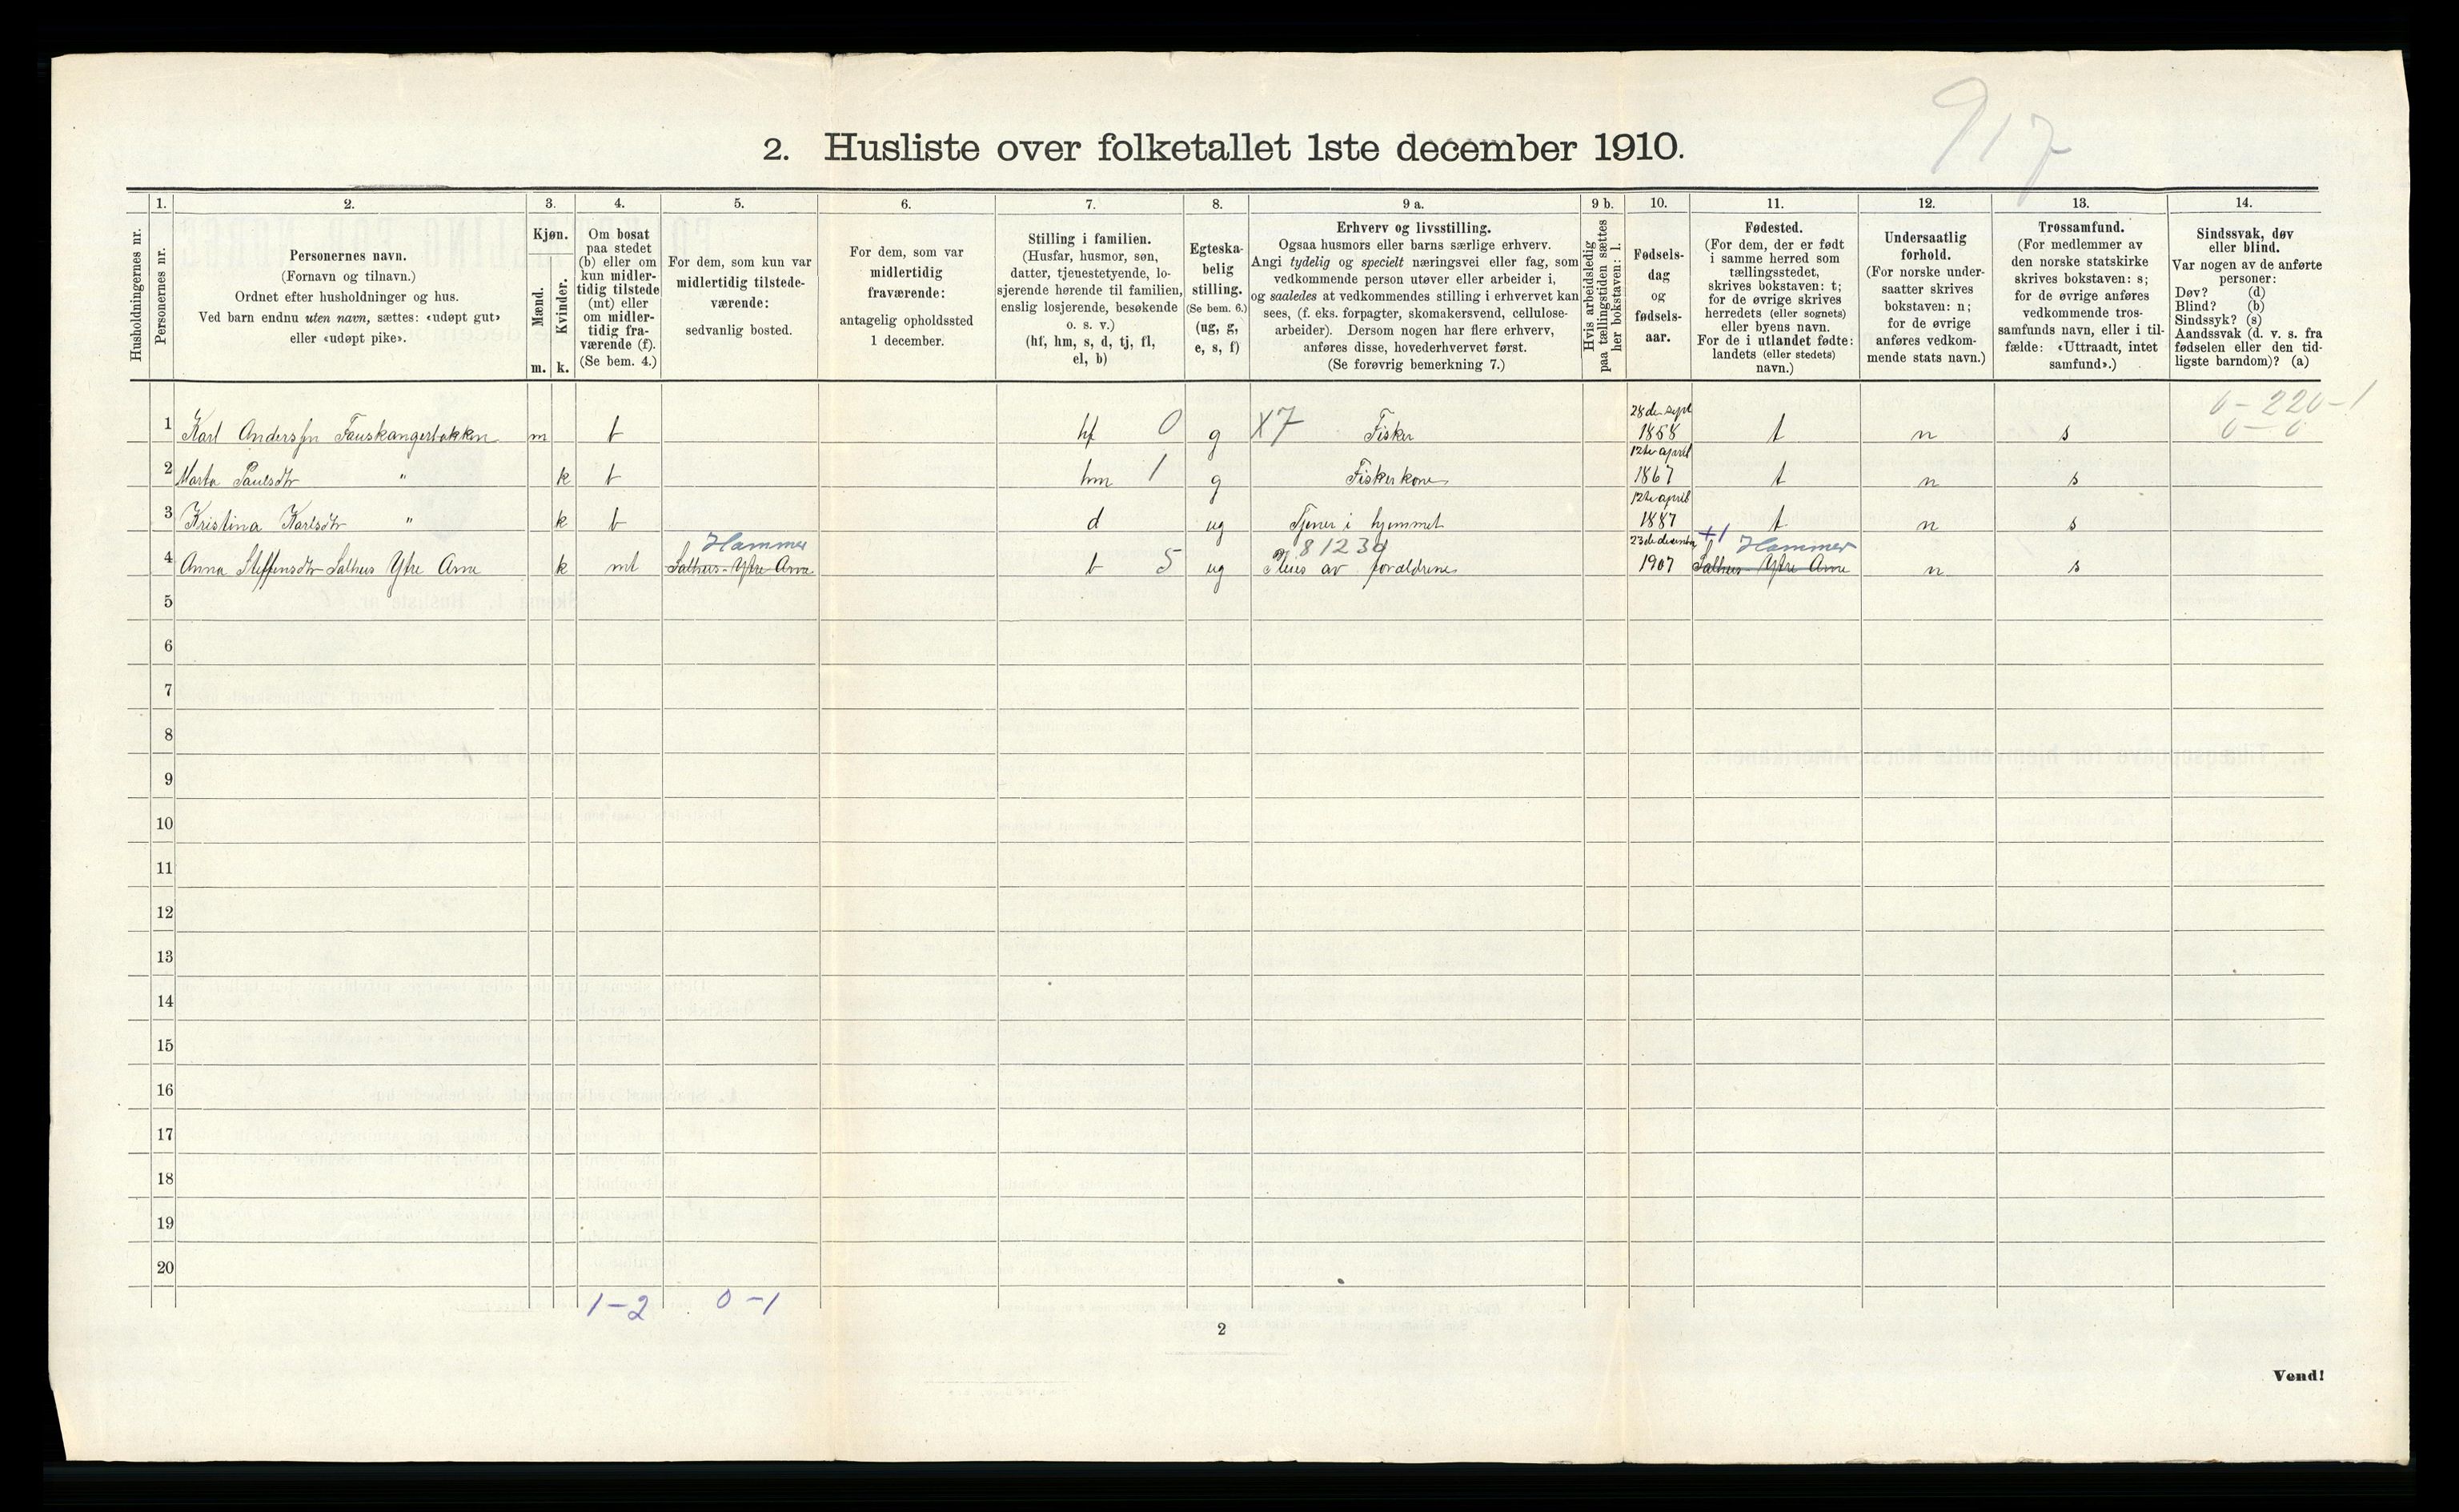 917
2. Husliste over folketallet 1ste december 1910.
Husholdningernes nr.
1. Personernes nr.
2. Personernes navn.
(Fornavn og tilnavn.)
Ordnet efter husholdninger og hus.
Ved barn endnu uten navn, sættes: «udøpt gut»
eller «udøpt pike».
3. Kjøn.
Mænd. m.
Kvinder. k.
4. Om bosat
paa stedet
(b) eller om
kun midler-
tidig tilstede
(mt) eller
om midler-
tidig fra-
værende (f).
(Se bem. 4.)
5. For dem, som kun var
midlertidig tilstede-
værende:
sedvanlig bosted.
6. For dem, som var
midlertidig
fraværende:
antagelig opholdssted
1 december.
7. Stilling i familien.
(Husfar, husmor, søn,
datter, tjenestetyende, lo-
sjerende hørende til familien,
enslig losjerende, besøkende
o. s. v.)
(hf, hm, s, d, tj, fl,
el, b)
8. Egteska-
belig
stilling.
(Se bem. 6.)
(ug, g,
e, s, f)
9 a. Erhverv og livsstilling.
Ogsaa husmors eller barns særlige erhverv.
Angi tydelig og specielt næringsvei eller fag, som
vedkommende person utøver eller arbeider i,
og saaledes at vedkommendes stilling i erhvervet kan
sees, (f. eks. forpagter, skomakersvend, cellulose-
arbeider). Dersom nogen har flere erhverv,
anføres disse, hovederhvervet først.
(Se forøvrig bemerkning 7.)
9 b. Hvis arbeidsledig
paa tællingstiden sættes
her bokstaven: l.
10. Fødsels-
dag
og
fødsels-
aar.
11. Fødested.
(For dem, der er født
i samme herred som
tællingsstedet,
skrives bokstaven: t;
for de øvrige skrives
herredets (eller sognets)
eller byens navn.
For de i utlandet fødte:
landets (eller stedets)
navn.)
12. Undersaatlig
forhold.
(For norske under-
saatter skrives
bokstaven: n;
for de øvrige
anføres vedkom-
mende stats navn.)
13. Trossamfund.
(For medlemmer av
den norske statskirke
skrives bokstaven: s;
for de øvrige anføres
vedkommende tros-
samfunds navn, eller i til-
fælde: «Uttraadt, intet
samfund».)
14. Sindssvak, døv
eller blind.
Var nogen av de anførte
personer:
Døv? (d)
Blind? (b)
Sindssyk? (s)
Aandssvak (d. v. s. fra
fødselen eller den tid-
ligste barndom)? (a)
0-220-1
0-0
1 Karl Anderssen Fauskangerbakken m b hf 0 g X7 Fisker 28de sept 1858 t n s
2 Marta Paulsdtr " k b hm 1 g Fiskerkone 12te april 1867 t n s
3 Kristina Karlsdtr " k b d ug Tjener i hjemmet 12te april 1887 t n s
Hammer 81239 +1 Hammer
4 Anna Steffensdtr Salhus Ytre Arne k mt Salhus-Ytre Arne b 5 ug Pleies av forældrene 23de december 1907 Salhus-Ytre Arne n s
5
6
7
8
9
10
11
12
13
14
15
16
17
18
19
20
1-2 0-1
2
Vend!